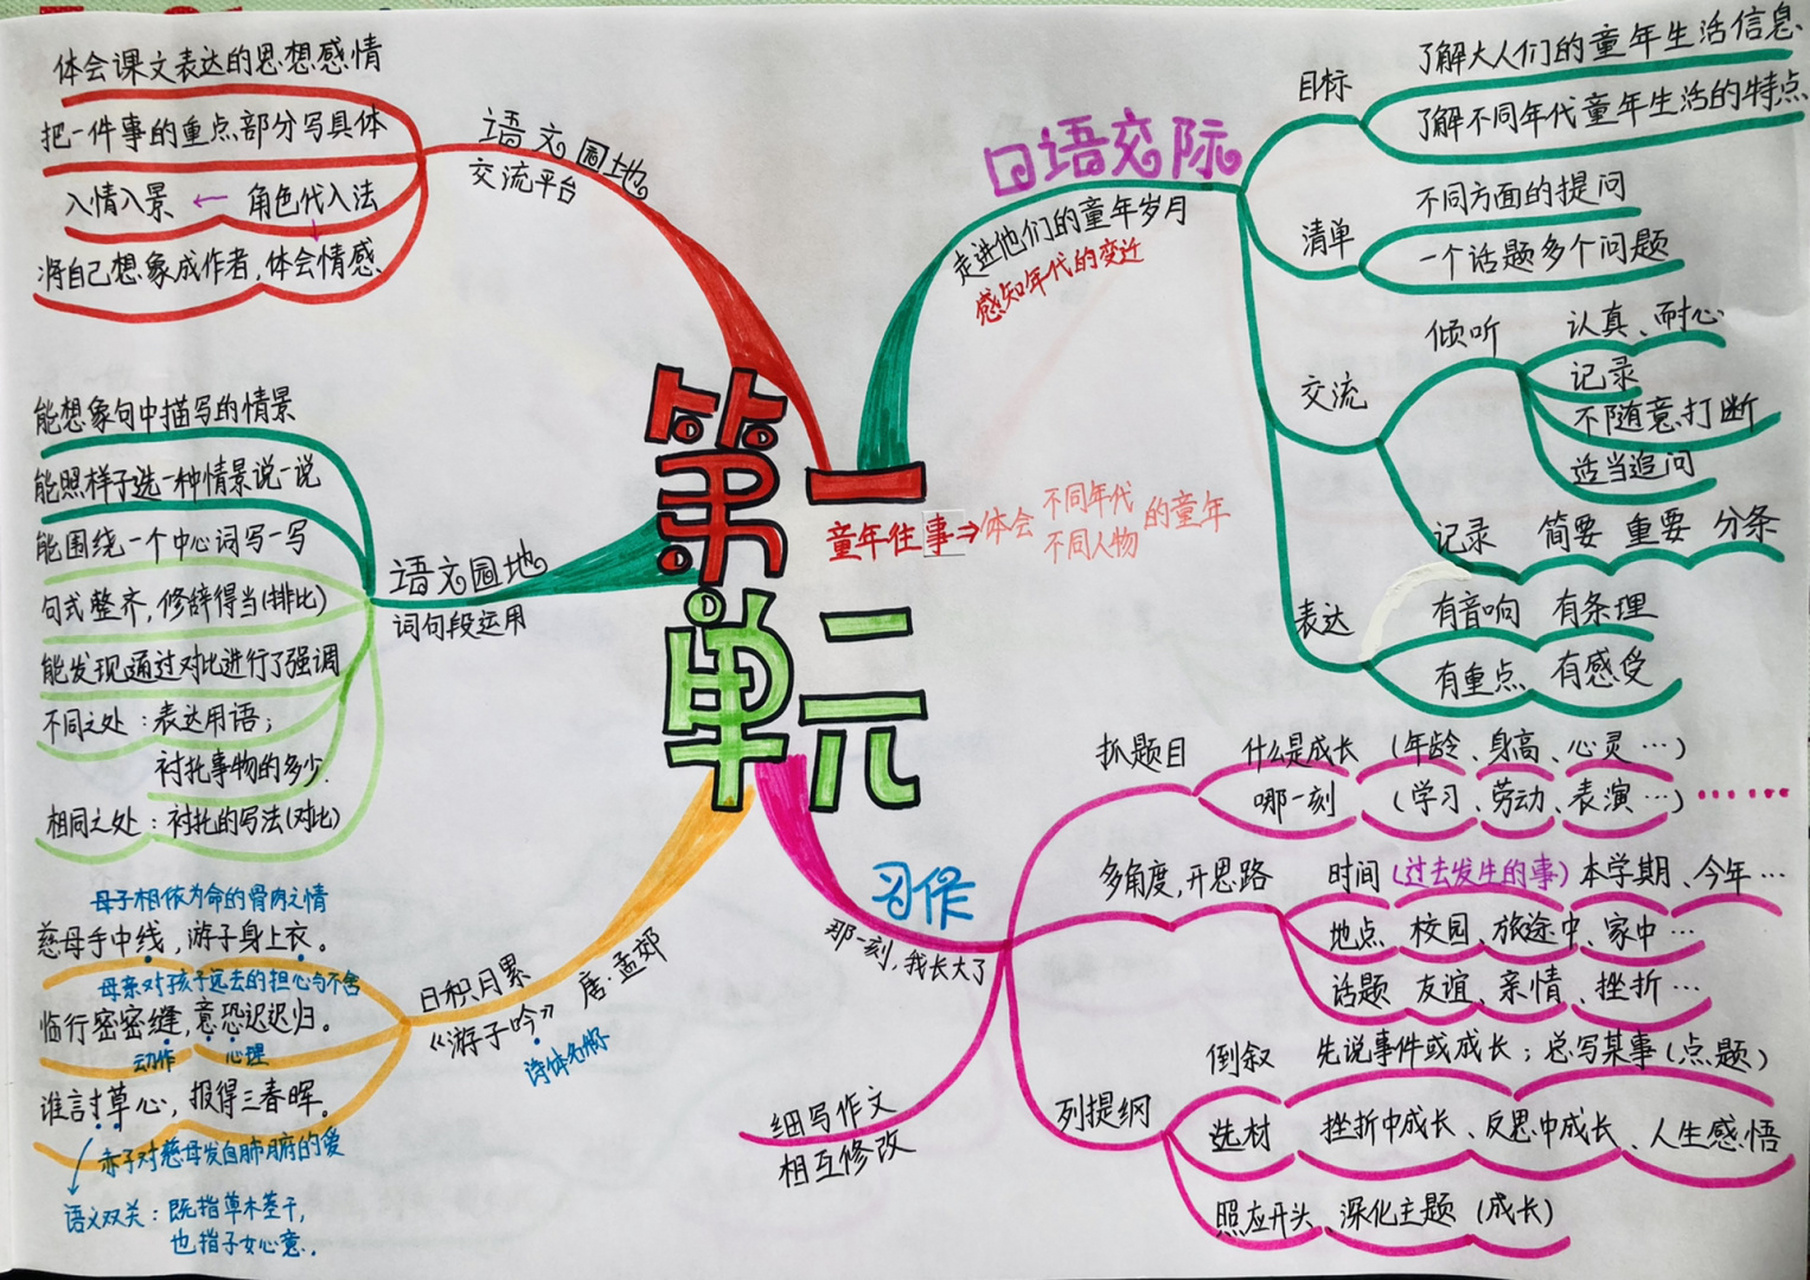 第一单元
童年往事⇒体会 不同年代 不同人物 的童年
口语交际
走进他们的童年岁月
感知年代的变迁
目标
了解大人们的童年生活信息
了解不同年代童年生活的特点
清单
不同方面的提问
一个话题多个问题
交流
倾听
认真、耐心
记录
不随意打断
适当追问
记录 简要 重要 分条
表达
有音响 有条理
有重点 有感受
习作
那一刻,我长大了
抓题目
什么是成长 (年龄、身高、心灵…)
哪一刻 (学习、劳动、表演…)……
多角度,开思路
时间(过去发生的事)本学期、今年…
地点 校园、旅途中、家中…
话题 友谊、亲情、挫折…
列提纲
倒叙 先说事件或成长;总写某事(点题)
选材 挫折中成长、反思中成长、人生感悟
照应开头、深化主题(成长)
细写作文
相互修改
日积月累
《游子吟》 唐·孟郊
诗体名称
母子相依为命的骨肉之情
慈母手中线,游子身上衣。
母亲对孩子远去的担心与不舍
临行密密缝,意恐迟迟归。
动作 心理
谁言寸草心,报得三春晖。
赤子对慈母发自肺腑的爱
语义双关:既指草木茎干,
也指子女心意.
语文园地
词句段运用
能想象句中描写的情景
能照样子选一种情景说一说
能围绕一个中心词写一写
句式整齐,修辞得当(排比)
能发现通过对比进行了强调
不同之处:表达用语;
衬托事物的多少.
相同之处:衬托的写法(对比)
语文园地
交流平台
体会课文表达的思想感情
把一件事的重点部分写具体
入情入景 ← 角色代入法
将自己想象成作者,体会情感